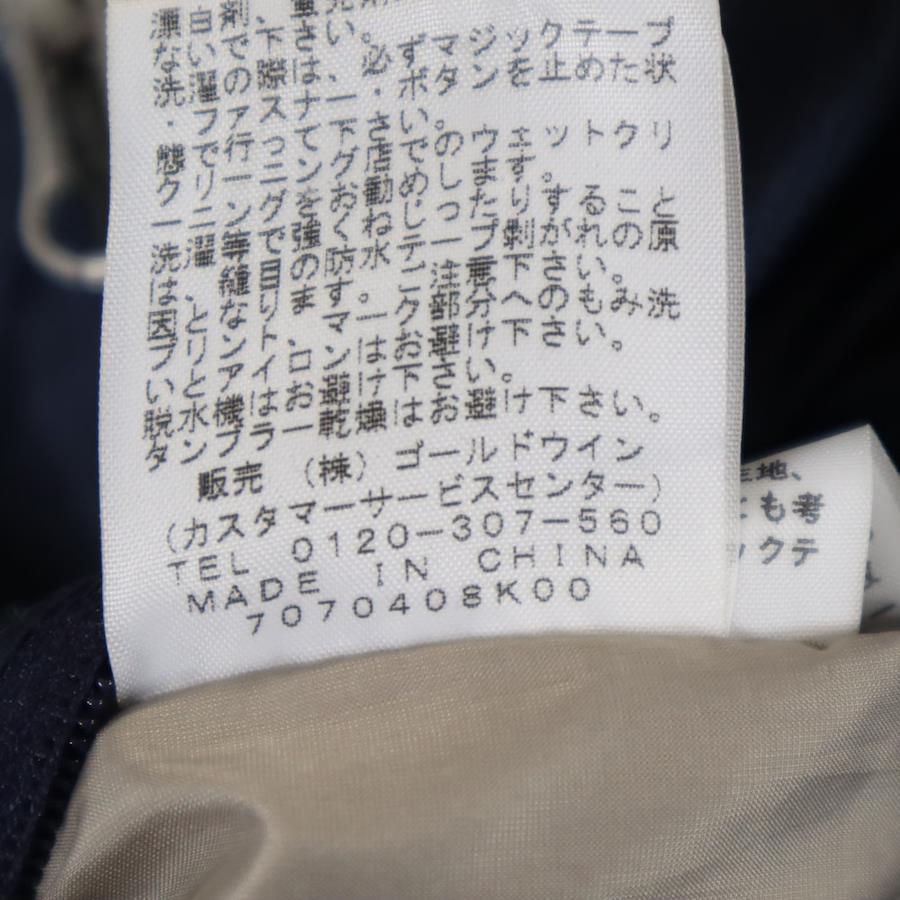 ないで下さい。
洗濯の際は、必ずマジックテープ
・ファスナー・ボタンを止めた状
態で行って下さい。
クリーニング店でのウェットクリ
ーニングをお勧めします。
洗濯等で強くねじったりすると
は、縫目の防水テープ剥がれの原
因となりますのでご注意下さい。
プリント、マーク部分へのもみ洗
いとアイロンはお避け下さい。
脱水機はお避け下さい。
タンブラー乾燥はお避け下さい。
販売 (株) ゴールドウイン
(カスタマーサービスセンター)
TEL 0120-307-560
MADE IN CHINA
7070408K00
地、
も考
ックテ